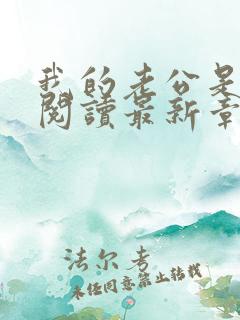 我的老公是
閱讀最新章
法尔考
未经同意禁止转载